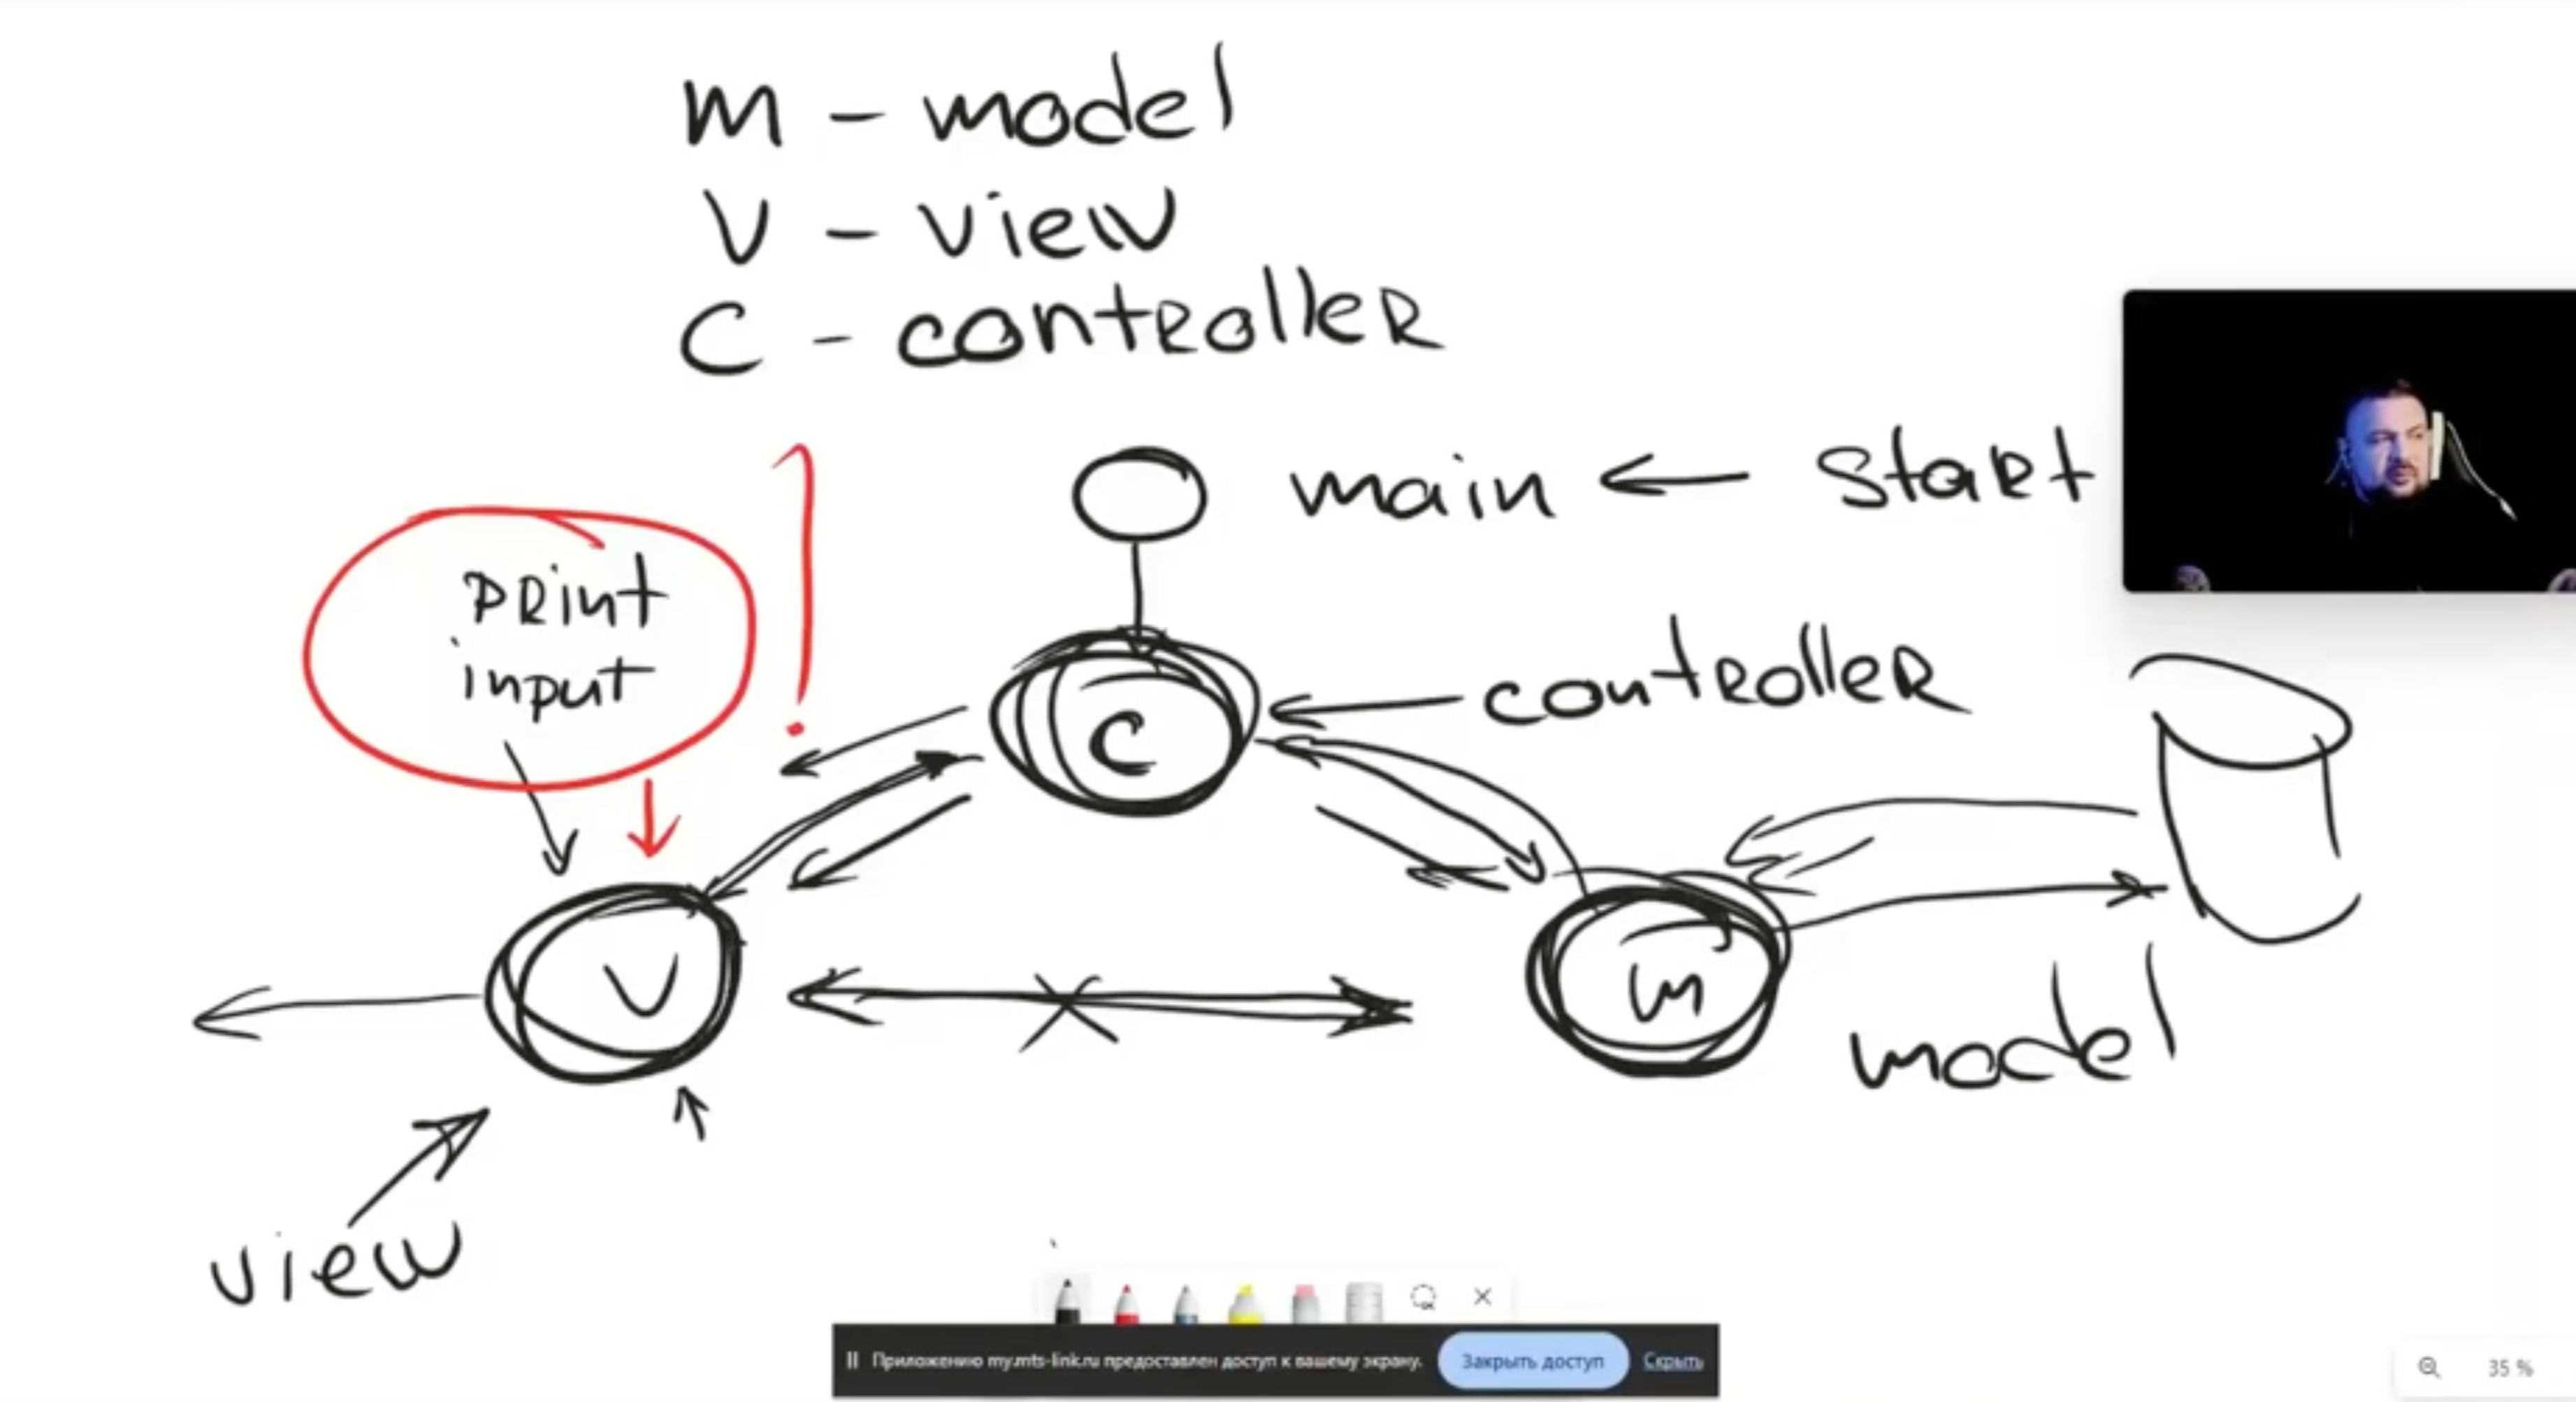 M - model
V - view
C - controller
main ← start
print
input
controller
C
V
M
model
view
Приложению my.mts-link.ru предоставлен доступ к вашему экрану.
Закрыть доступ
Скрыть
35 %